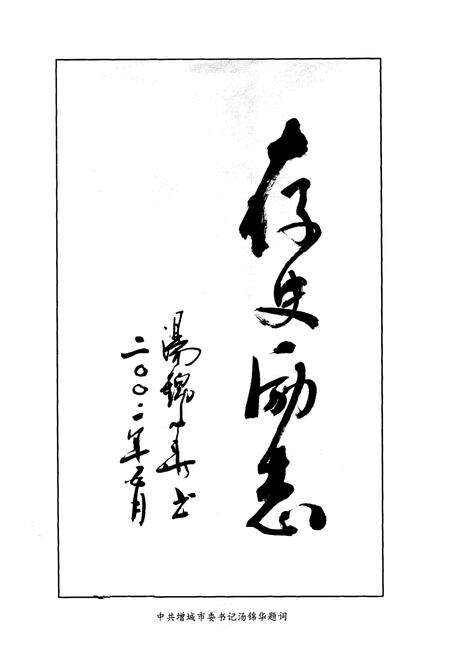 存史励志
汤锦华书
二〇〇二年五月
中共增城市委书记汤锦华题词